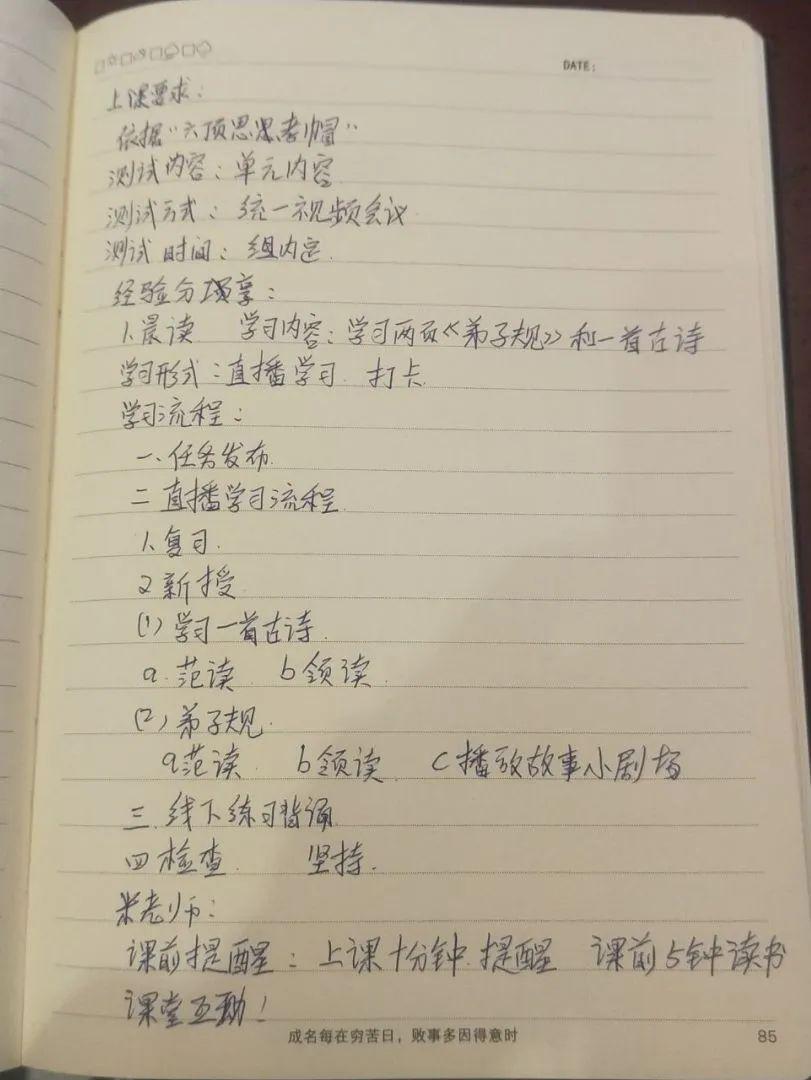 DATE:
上课要求：
依据“六顶思思考帽”
测试内容：单元内容
测试方式：统一视频会议
测试时间：组内定.
经验分享：
1.晨读 学习内容：学习两页《弟子规》和一首古诗
学习形式：直播学习. 打卡
学习流程：
一、任务发布.
二 直播学习流程.
1.复习.
2 新授.
(1) 学习一首古诗.
a.范读 b 领读.
(2) 弟子规.
a范读. b领读. c播放故事小剧场
三.线下练习背诵.
四 检查. 坚持.
米老师：
课前提醒：上课十分钟.提醒 课前5钟读书
课堂互动！
成名每在穷苦日，败事多因得意时
85